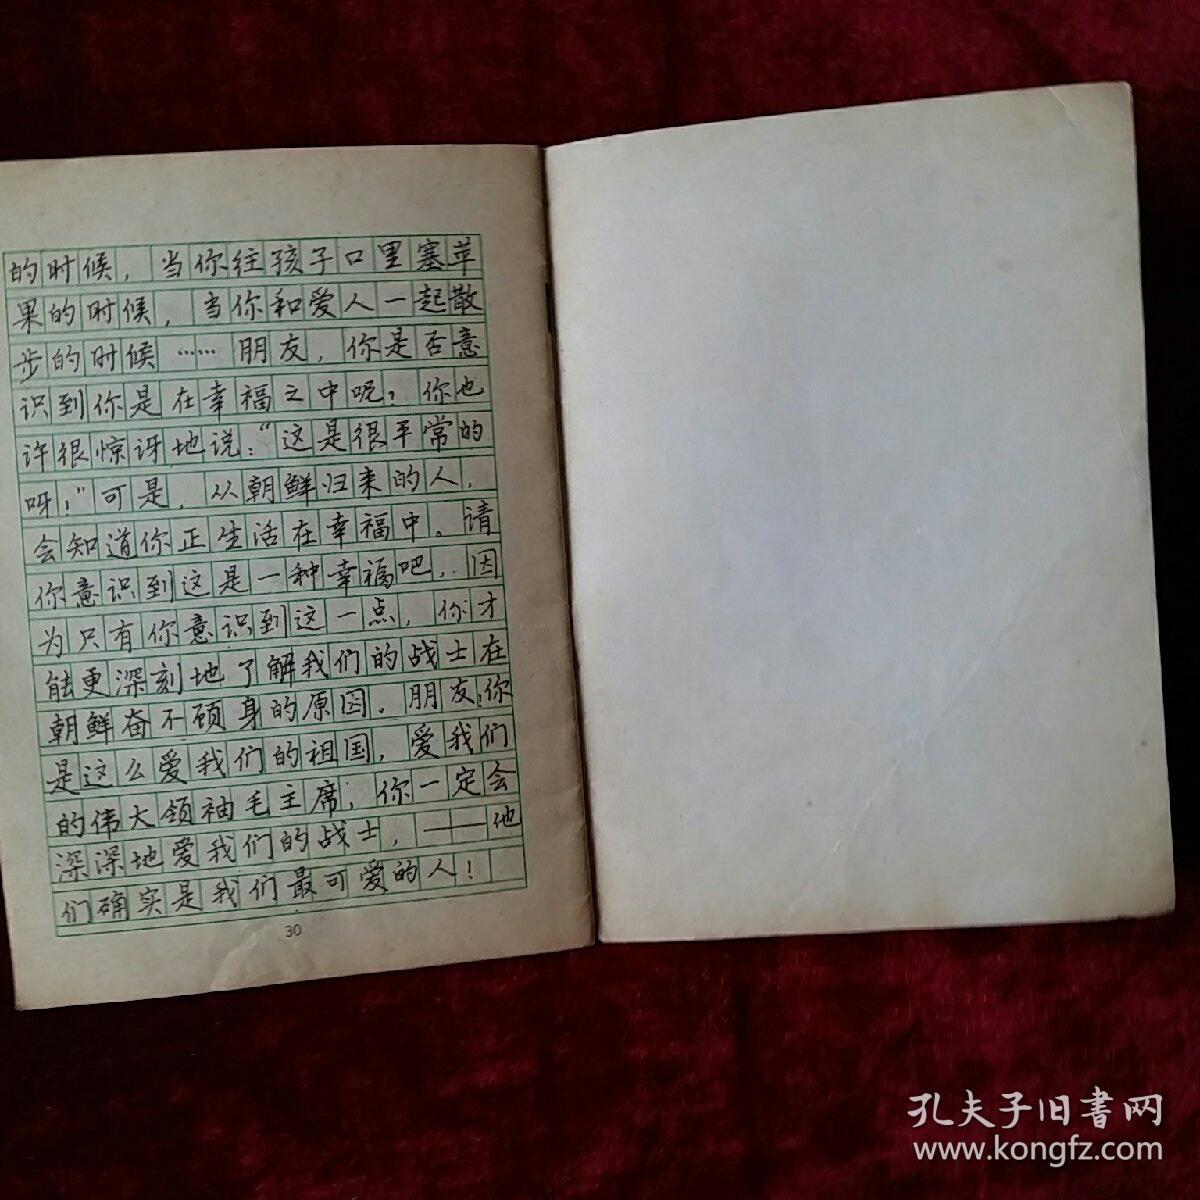 的时候，当你往孩子口里塞苹
果的时候，当你和爱人一起散
步的时候……朋友，你是否意
识到你是在幸福之中呢？你也
许很惊讶地说：“这是很平常的
呀！”可是，从朝鲜归来的人，
会知道你正生活在幸福中。请
你意识到这是一种幸福吧，因
为只有你意识到这一点，你才
能更深刻地了解我们的战士在
朝鲜奋不顾身的原因。朋友！你
是这么爱我们的祖国，爱我们
的伟大领袖毛主席，你一定会
深深地爱我们的战士，——他
们确实是我们最可爱的人！
30
孔夫子旧书网
www.kongfz.com